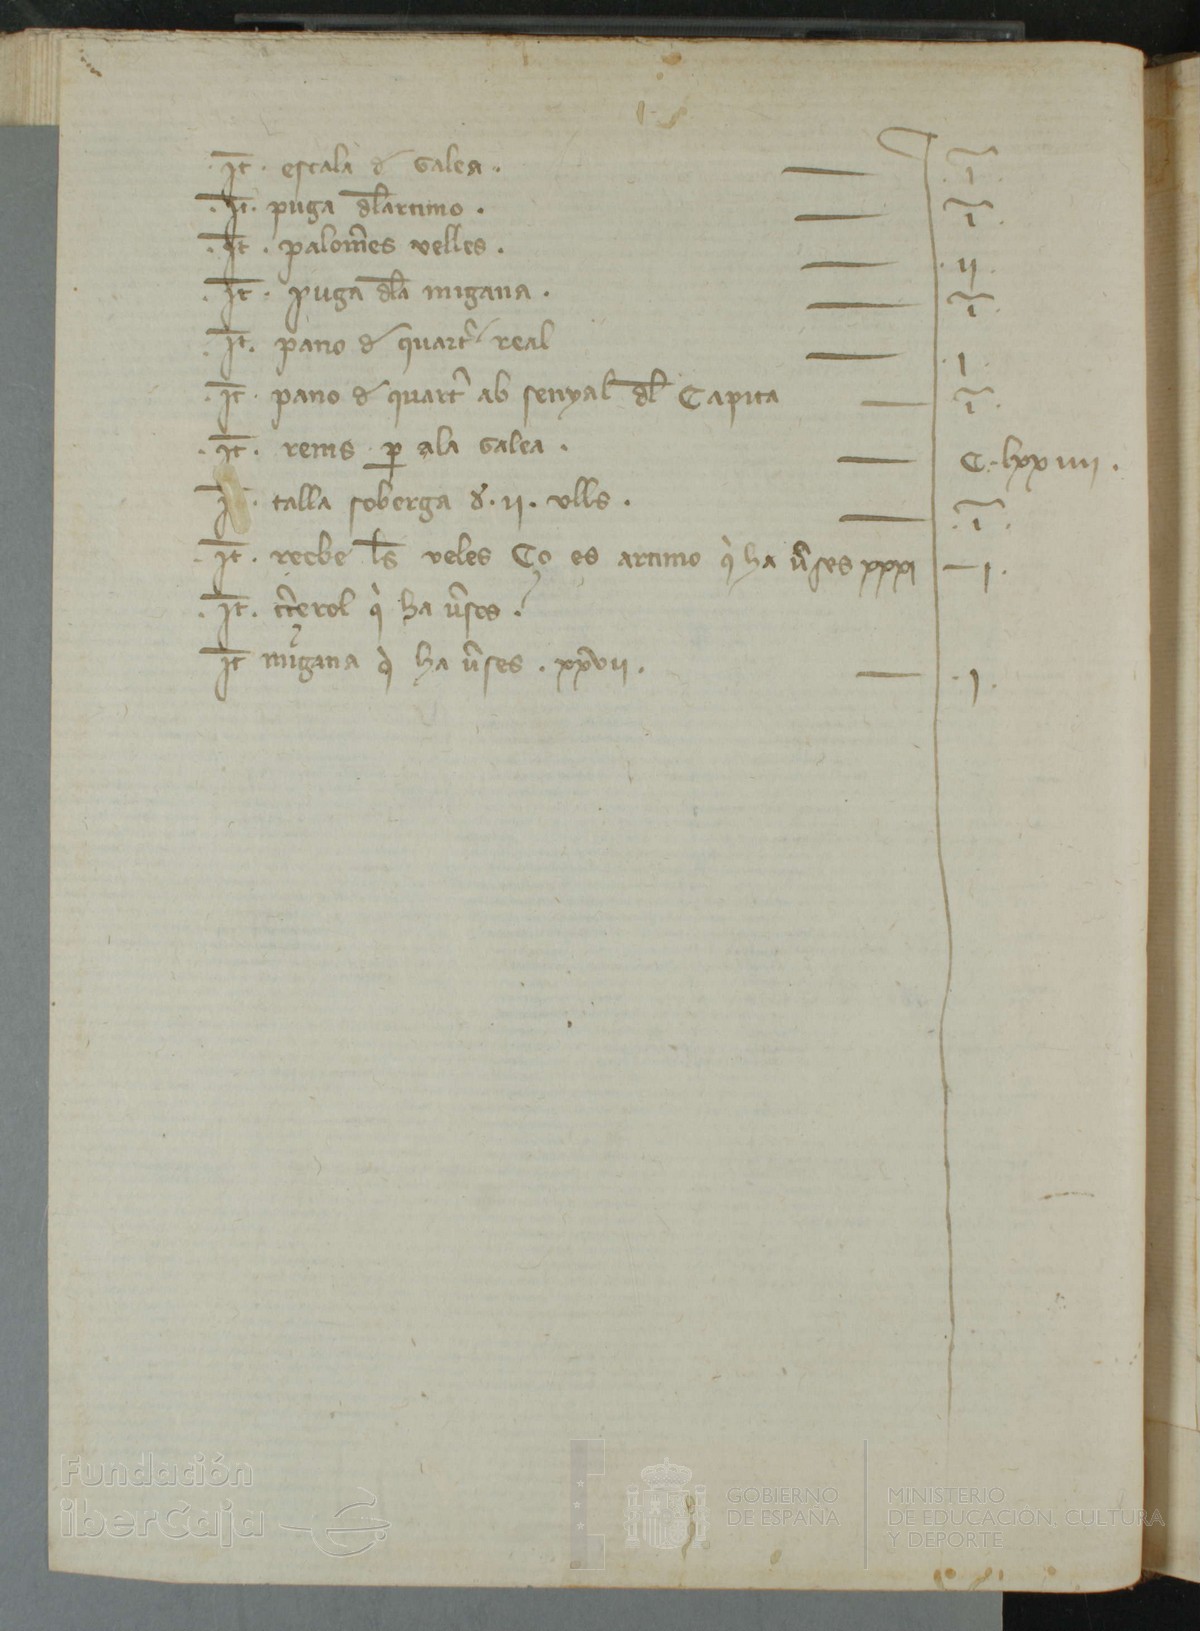 ·It· escala d galea · — ·i·
·It· puga dlartimo · — ·i·
·It· palomes velles · — ·ii·
·It· puga dla migana · — ·i·
·It· pano d quart real — ·i·
·It· pano d quart ab senyal dl Capita — ·i·
·It· rems p ala galea · — C·lxxiiii·
·It· talla soberga d·ii·ulls · — ·i·
·It· recbe ls veles Ço es artimo q ha vses xxxi — i·
·It· terol q ha vses ·
It migana q ha vses · xxvii · — ·i·
Fundación
iberCaja
GOBIERNO
DE ESPAÑA
MINISTERIO
DE EDUCACIÓN, CULTURA
Y DEPORTE